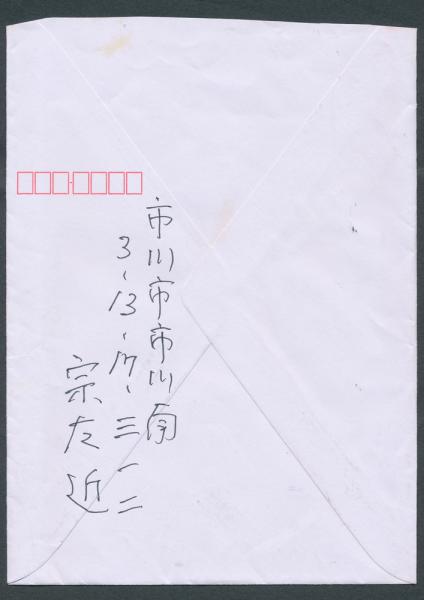 市川市市川南
3-13-17-三一二
宗左近